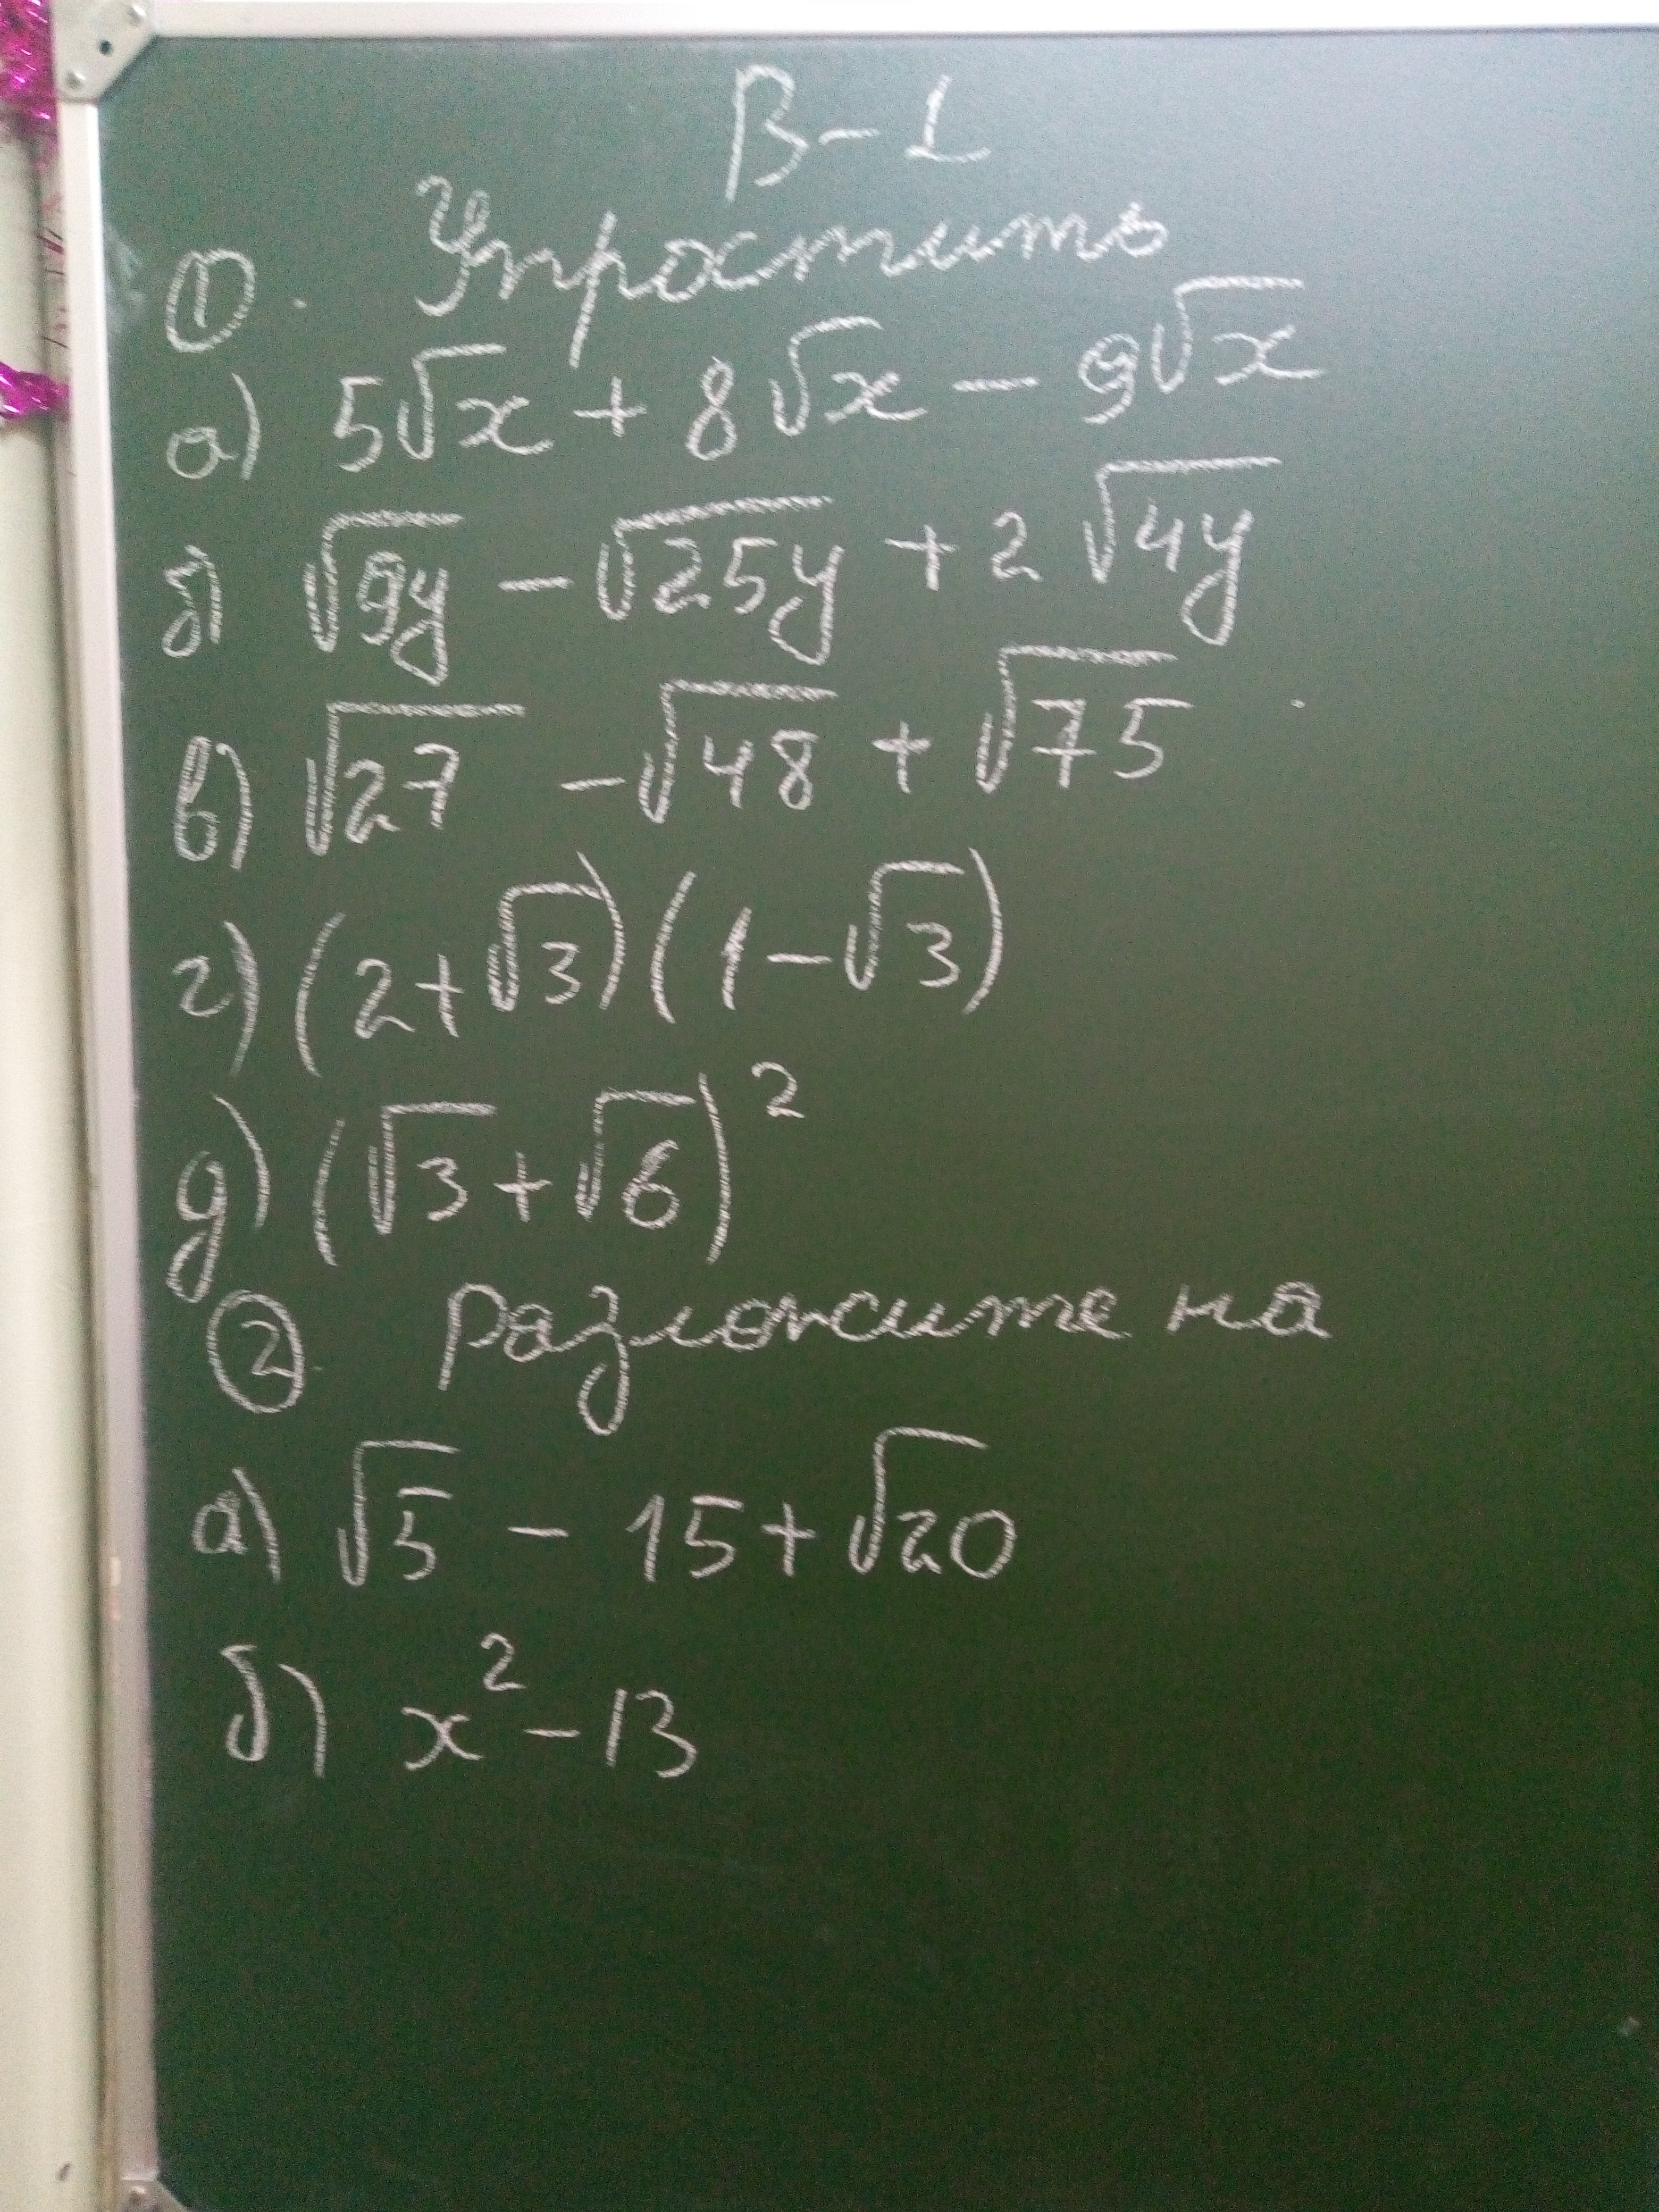 В-1
① Упростить
а) 5√x + 8√x - 9√x
б) √9y - √25y + 2√4y
в) √27 - √48 + √75
г) (2+√3)(1-√3)
д) (√3+√6)²
② Разложите на
а) √5 - 15 + √20
б) x² - 13